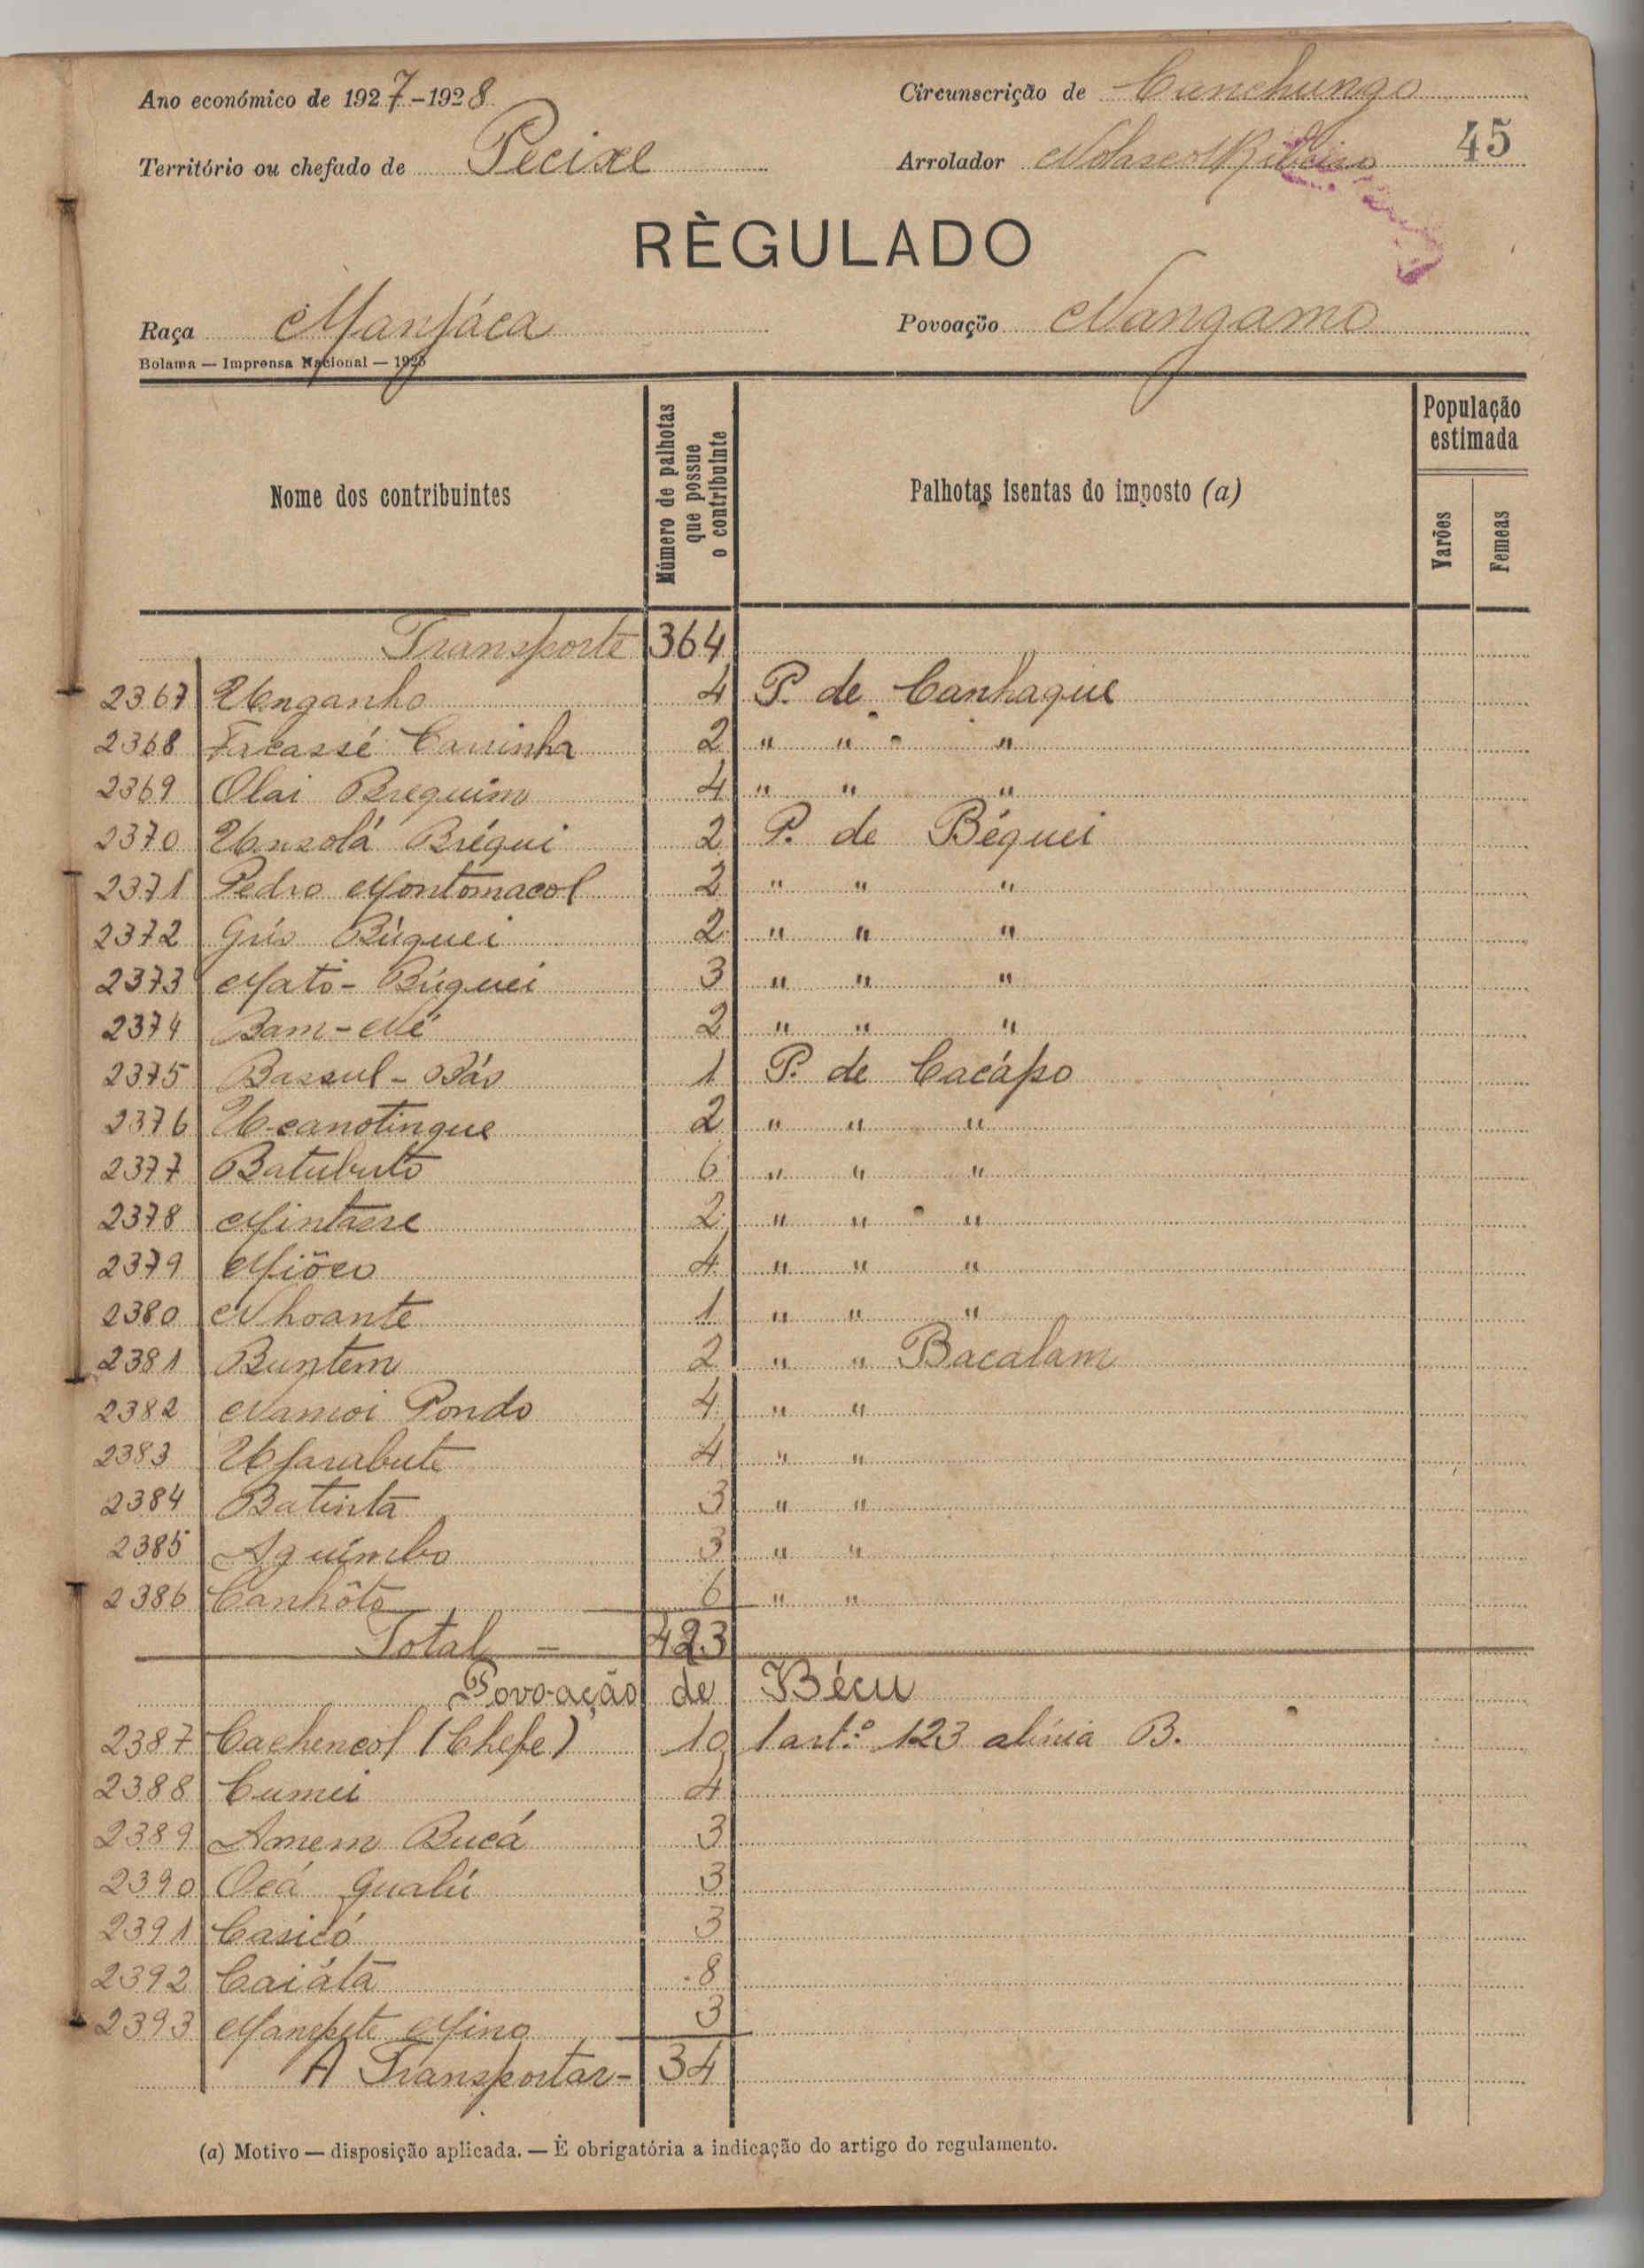 Ano económico de 1927-1928
Circunscrição de Canchungo
45
Território ou chefado de Pecixe
Arrolador Nolasco Ribeiro
RÈGULADO
Raça Manjáca
Povoação Nangamo
Bolama — Imprensa Nacional — 1925
Nome dos contribuintes
Número de palhotas que possue o contribuinte
Palhotas isentas do imposto (a)
População estimada
Varões
Femeas
Transporte 364
2367 Unganho 4 P. de Canhaque
2368 Facassé Cauinha 2 " " "
2369 Olai Brequim 4 " " "
2370 Unsolá Bréqui 2 P. de Béquei
2371 Pedro Montomacol 2 " " "
2372 Grís Búquei 2 " " "
2373 Mató - Búquei 3 " " "
2374 Bam - Né 2 " " "
2375 Bassul - Bás 1 P. de Cacápo
2376 U-canotingue 2 " " "
2377 Batubuto 6 " " "
2378 2 " " "
2379 Miôco 4 " " "
2380 Nhoante 1 " " "
2381 Buntem 2 " " Bacalam
2382 Namoi Pondo 4 " "
2383 4 " "
2384 Batinta 3 " "
2385 Aguímbo 3 " "
2386 Canhôto 6 " "
Total — 423
Povoação de Bécu
2387 Cachencol (Chefe) 10 1 artº 123 alínia B.
2388 Cumei 4
2389 Amem Bucá 3
2390 Ocá Gualú 3
2391 Casicó 3
2392 Caiáta 8
2393 Mampete Mino 3
A Transportar - 34
(a) Motivo — disposição aplicada. — É obrigatória a indicação do artigo do regulamento.